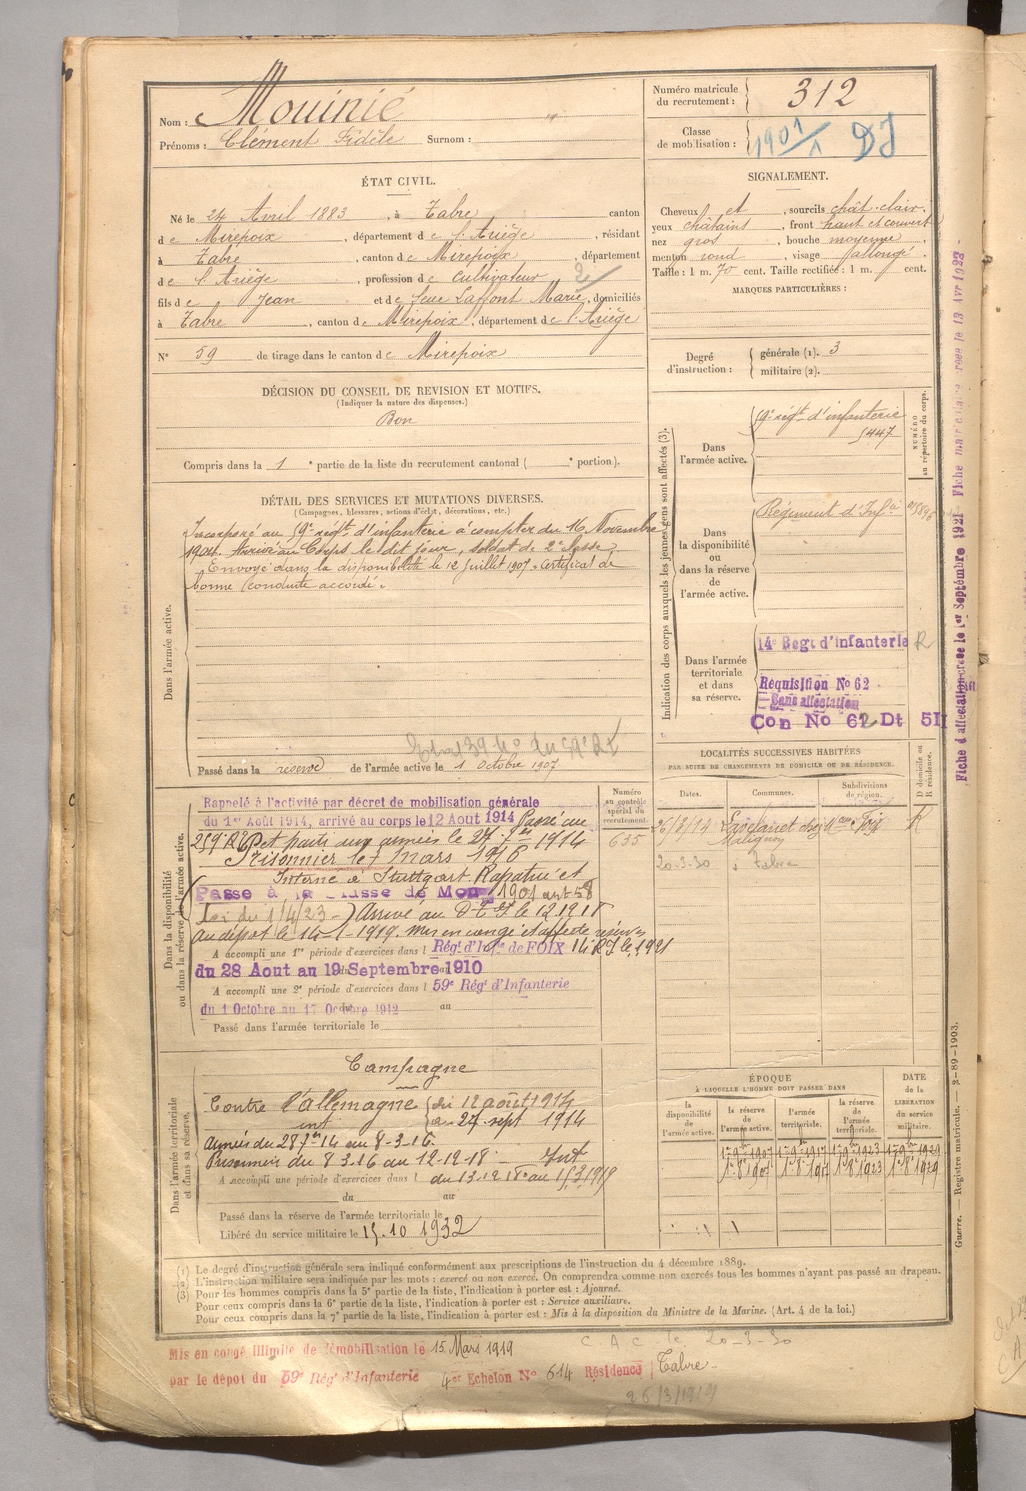 Nom : Mouinié
Prénoms : Clément Fidèle Surnom : "
Numéro matricule du recrutement : 312
Classe de mobilisation : 1901 DI
ÉTAT CIVIL.
Né le 24 Avril 1883, à Tabre canton
de Mirepoix, département de l'Ariège, résidant
à Tabre, canton de Mirepoix, département
de l'Ariège, profession de Cultivateur 2
fils de Jean et de feue Laffont Marie, domiciliés
à Tabre, canton de Mirepoix, département de l'Ariège
N° 59 de tirage dans le canton de Mirepoix
SIGNALEMENT.
Cheveux et, sourcils chât. clair.
yeux châtains, front haut et couvert
nez gros, bouche moyenne
menton rond, visage allongé.
Taille : 1 m. 70 cent. Taille rectifiée : 1 m. cent.
MARQUES PARTICULIÈRES :
Degré d'instruction : générale (1). 3
militaire (2).
DÉCISION DU CONSEIL DE REVISION ET MOTIFS.
(Indiquer la nature des dispenses.)
Bon
Compris dans la 1e partie de la liste du recrutement cantonal ( e portion).
DÉTAIL DES SERVICES ET MUTATIONS DIVERSES.
(Campagnes, blessures, actions d'éclat, décorations, etc.)
Dans l'armée active.
Incorporé au 59e régt d'infanterie à compter du 16 Novembre
1904. Arrivé au Corps le dit jour, soldat de 2e classe.
Envoyé dans la disponibilité le 12 Juillet 1907. Certificat de
bonne conduite accordé.
Passé dans la réserve de l'armée active le 1 Octobre 1907.
Indication des corps auxquels les jeunes gens sont affectés (3).
NUMÉRO au répertoire du corps.
Dans l'armée active.
59e régt d'infanterie
5447
Dans la disponibilité ou dans la réserve de l'armée active.
Régiment d'Infie
Dans l'armée territoriale et dans sa réserve.
14e Regt d'infanterie R
Requisition No 62
Sans affectation
Con No 62 Dt 5II
LOCALITÉS SUCCESSIVES HABITÉES
PAR SUITE DE CHANGEMENTS DE DOMICILE OU DE RÉSIDENCE.
Dates. Communes. Subdivisions de région. D domicile ou R résidence.
Lavelanet chez Foix R
20-3-30 Tabre
Dans la disponibilité ou dans la réserve de l'armée active.
Numéro au contrôle spécial du recrutement.
635
Rappelé à l'activité par décret de mobilisation générale
du 1er Août 1914, arrivé au corps le 12 Août 1914 Passé au
259e RI et parti aux armées le 27. 7bre 1914
Prisonnier le 7 Mars 1916
Interné à Stuttgart. Rapatrié et
Passe à la classe de Mon 1901 art 58
Loi du 1/4/23 Arrivé au
au dépôt le 14-1-1919. Mis en congé et affecté réserve
A accompli une 1re période d'exercices dans l Régt d'Infie de FOIX 14e RI le
du 28 Aout au 19 Septembre 1910
A accompli une 2e période d'exercices dans l 59e Régt d'Infanterie
du 1 Octobre au 17 Octobre 1912 au
Passé dans l'armée territoriale le
Dans l'armée territoriale et dans sa réserve.
Campagne
Contre l'allemagne du 12 août 1914
int au 27 sept 1914
Armées du 28 7bre 14 au 8-3-16.
Prisonnier du 8 3.16 au 12-12-18. Int
A accompli une période d'exercices dans l du 13.12.18 au 15/3/1919
du au
Passé dans la réserve de l'armée territoriale le
Libéré du service militaire le 15.10 1932
ÉPOQUE
À LAQUELLE L'HOMME DOIT PASSER DANS
la disponibilité de l'armée active.
la réserve de l'armée active.
l'armée territoriale.
la réserve de l'armée territoriale.
DATE de la LIBERATION du service militaire.
1 8bre 1907 1 8bre 1917 1 8bre 1923 1 8bre 1929
(1) Le degré d'instruction générale sera indiqué conformément aux prescriptions de l'instruction du 4 décembre 1889.
(2) L'instruction militaire sera indiquée par les mots : exercé ou non exercé. On comprendra comme non exercés tous les hommes n'ayant pas passé au drapeau.
(3) Pour les hommes compris dans la 5e partie de la liste, l'indication à porter est : Ajourné.
Pour ceux compris dans la 6e partie de la liste, l'indication à porter est : Service auxiliaire.
Pour ceux compris dans la 7e partie de la liste, l'indication à porter est : Mis à la disposition du Ministre de la Marine. (Art. 4 de la loi.)
C. A. C. le 20-3-30
Mis en congé illimité de démobilisation le 15 Mars 1919
par le dépot du 59e Régt d'Infanterie 4er Echelon No 614 Résidence Tabre
26/3/1919
Guerre. — Registre matricule. — 2-89-1903.
Fiche d'affectation créée le 1er Septembre 1921 - Fiche matriculaire créée le 13 Avr 1922 -